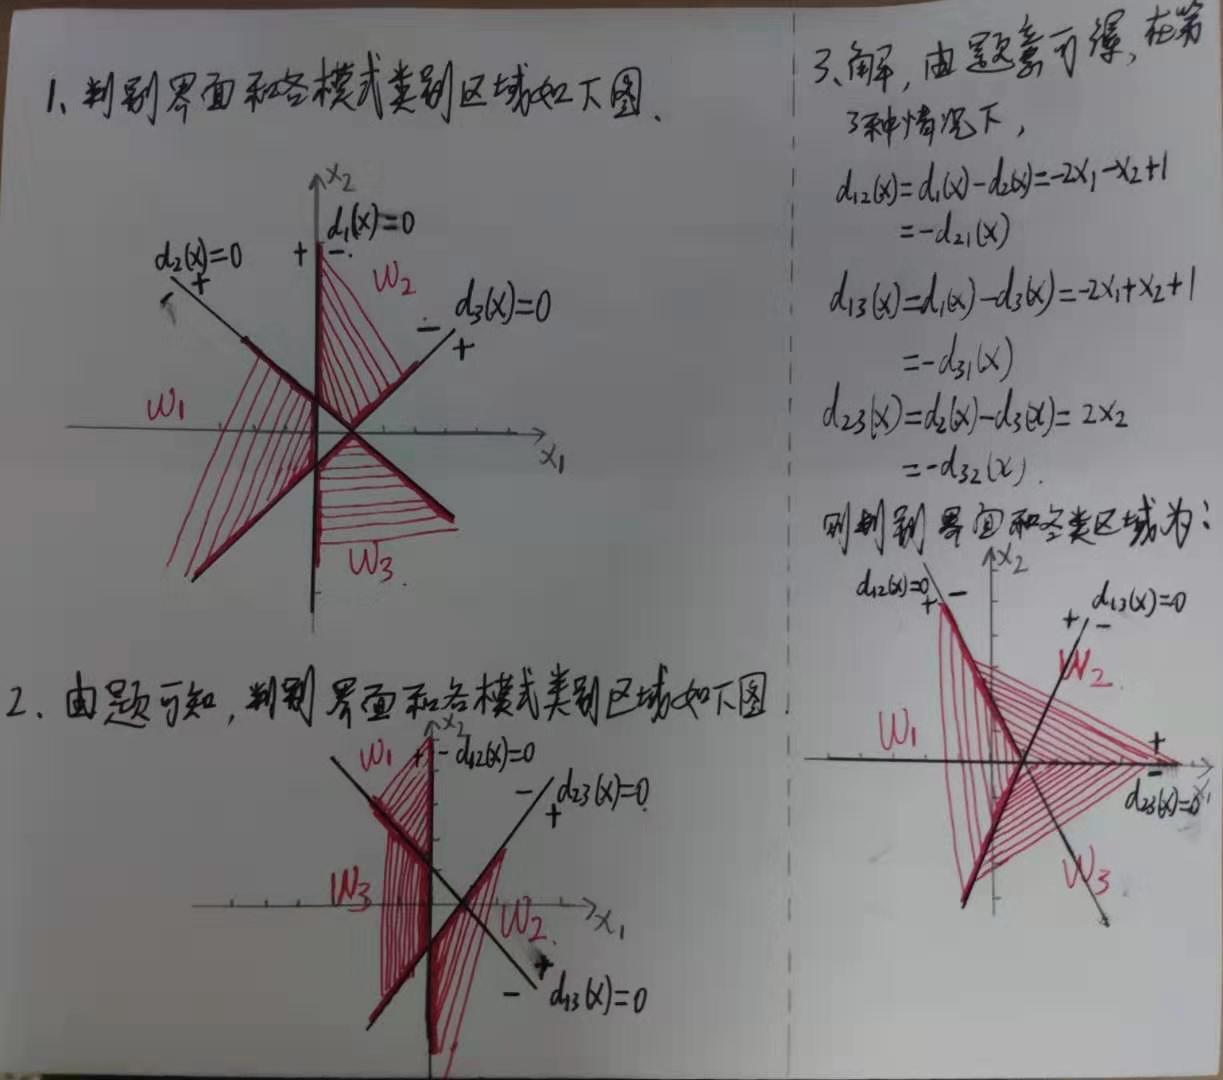 1、判别界面和各模式类别区域如下图.
x₂
d₁(x)=0
d₂(x)=0
+
+ -
W₂
d₃(x)=0
-
+
W₁
x₁
W₃
2. 由题可知,判别界面和各模式类别区域如下图
x₂
W₁
+ - d₁₂(x)=0
- d₂₃(x)=0
+
W₃
W₂
x₁
+
- d₁₃(x)=0
3、解,由题意可得,在第
3种情况下,
d₁₂(x)=d₁(x)-d₂(x)=-2x₁-x₂+1
=-d₂₁(x)
d₁₃(x)=d₁(x)-d₃(x)=-2x₁+x₂+1
=-d₃₁(x)
d₂₃(x)=d₂(x)-d₃(x)=2x₂
=-d₃₂(x).
则判别界面和各类区域为:
x₂
d₁₂(x)=0
+ -
d₁₃(x)=0
+ -
W₂
W₁
+
-
x₁
d₂₃(x)=0
W₃